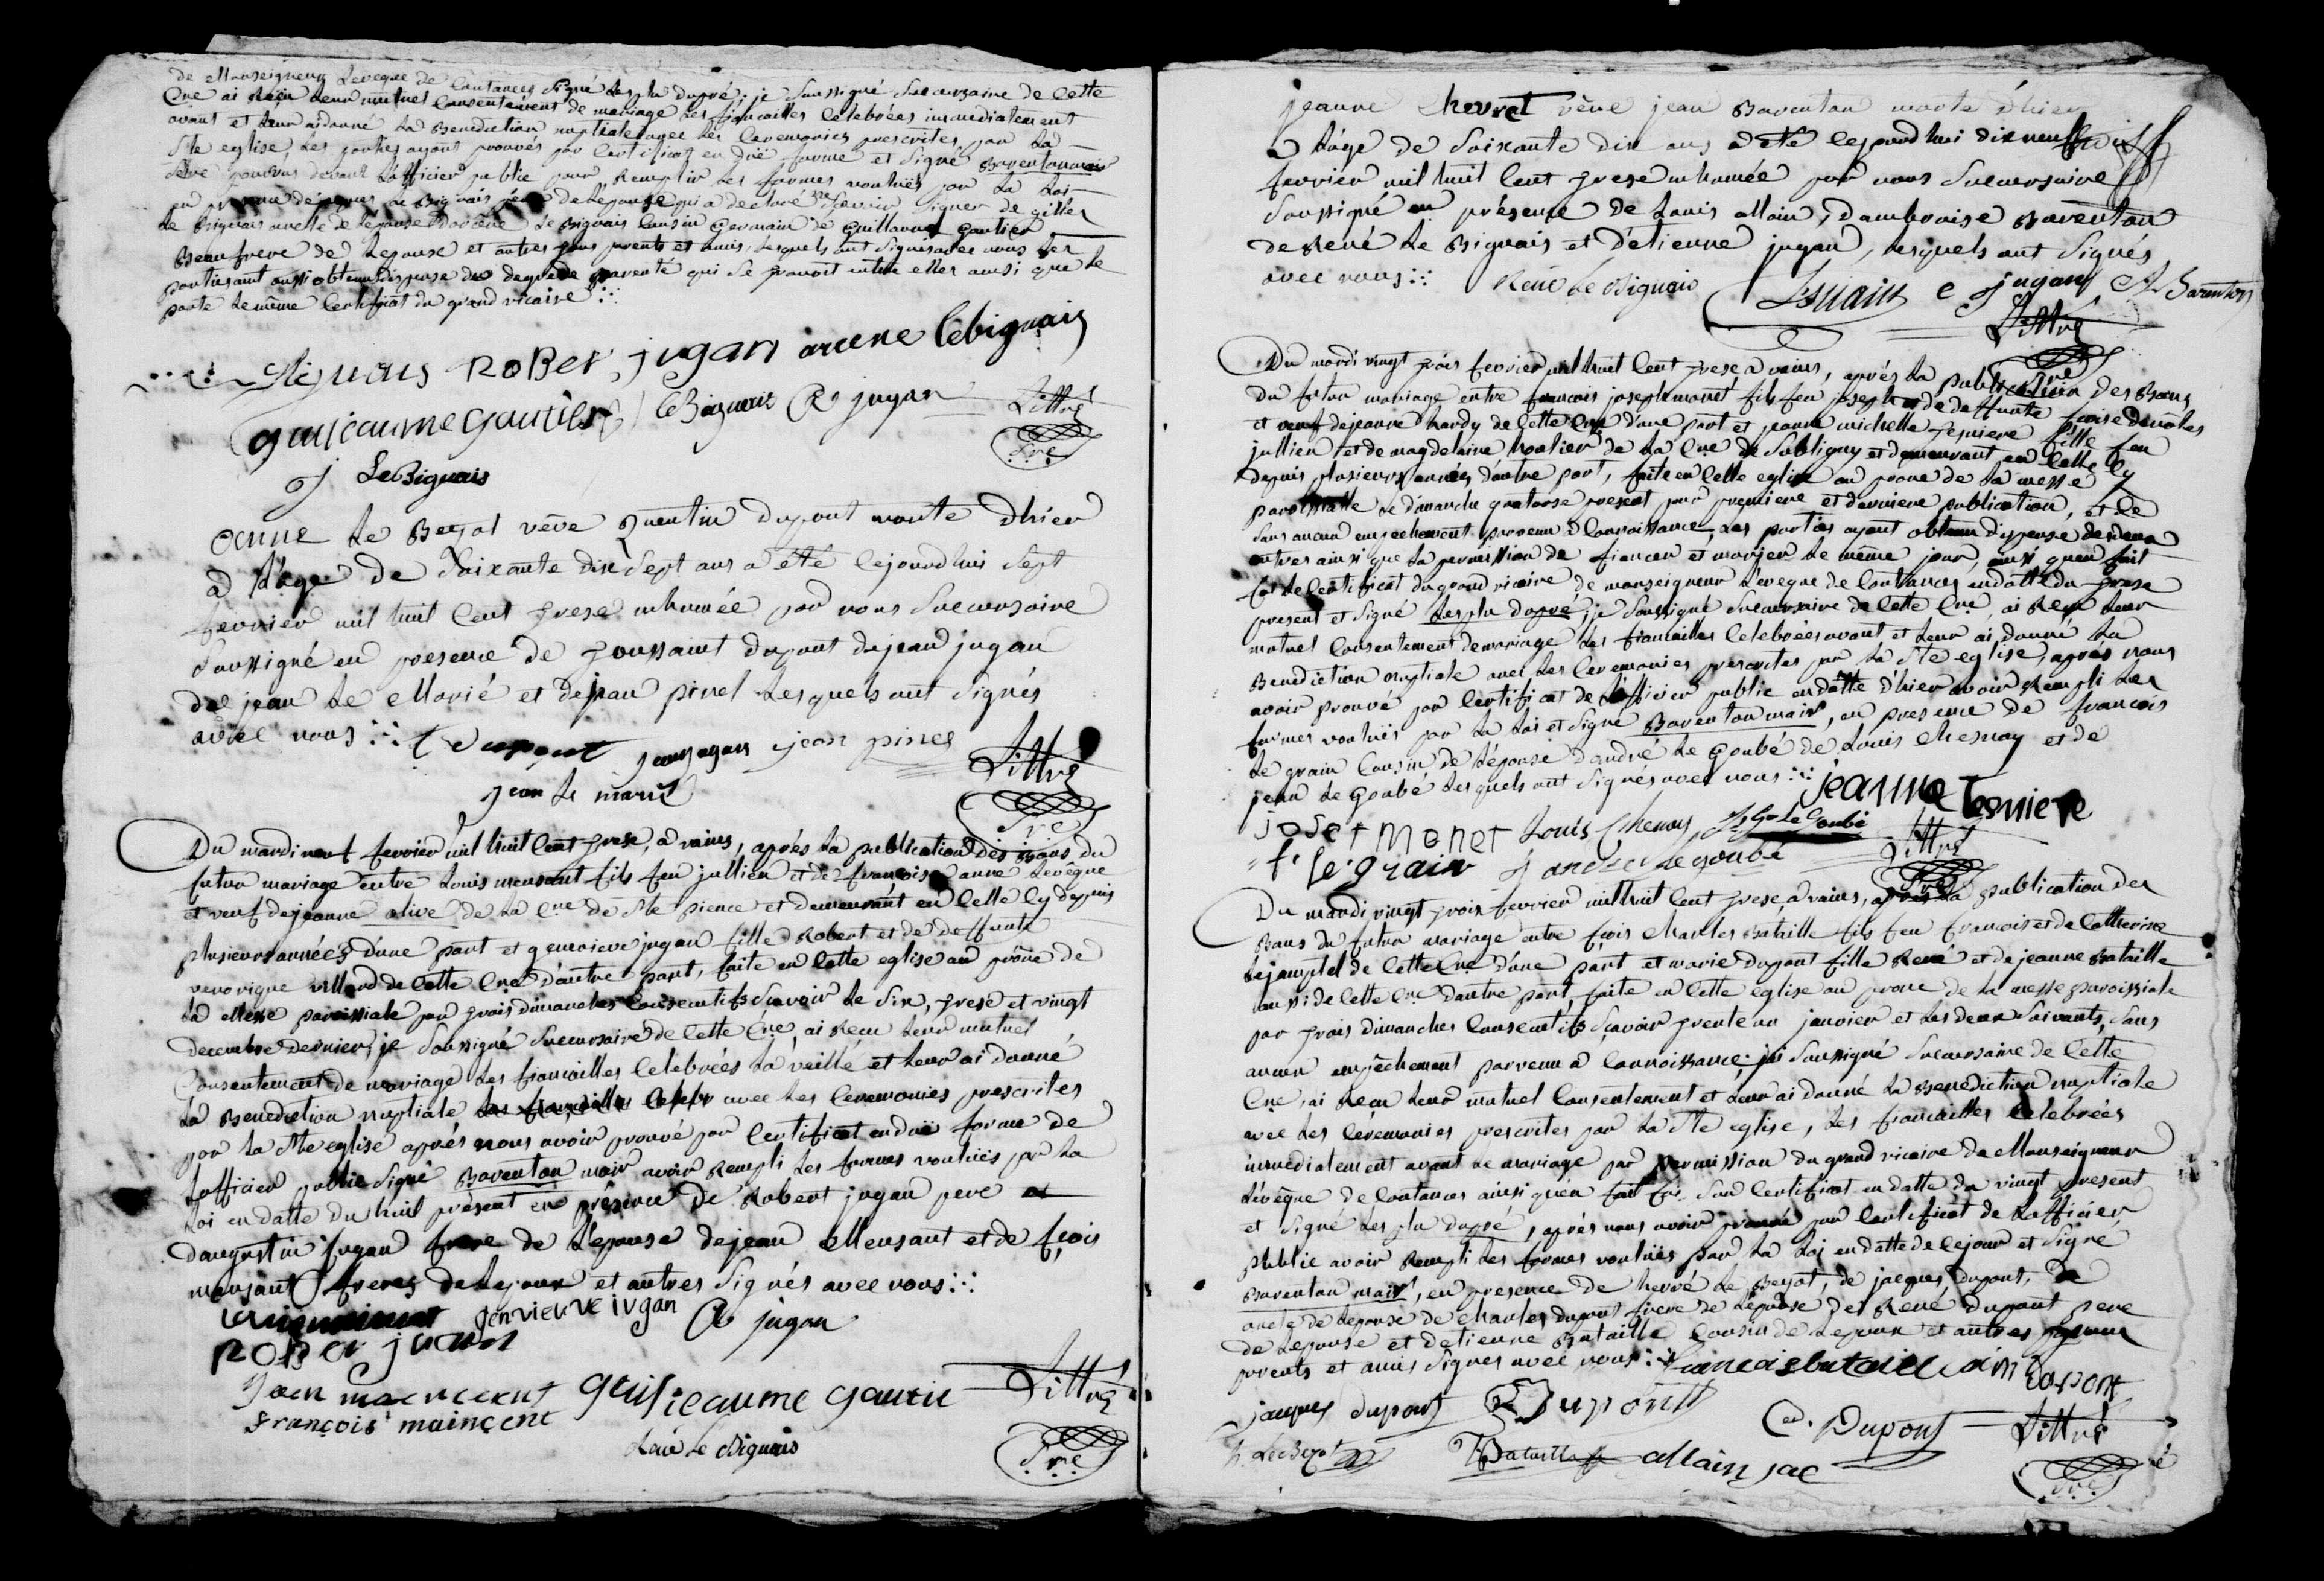 de Monseigneur Leveque de Coutances Signé Lesplu dupré. je Soussigné Succursaire de Cette
Cne ai Reçu Leur mutuel Consentement de mariage Les fiançailles Celebrées immediatement
avant et Leur ai donné La Benediction nuptiale avec Les Ceremonies prescrites par La
Ste eglise, Les parties ayant prouvés par Certificat en duë forme et Signé Baventon maire
Setre pourvus devant Lofficier public pour Remplir Les formes vouluës par La Loi
en presence de Le Bignais pere de Lepouse qui a declaré ne Sçavoir Signer de gilles
Le Bignais oncle de Lépouse Le Bignais Cousin Germain de Guillaume Gautier
Beaufrere de Lepouse et autres parents et amis, Lesquels ont Signés avec nous Les
parties ont aussi obtenu Dispense du degré de parenté qui Se trouvoit entre elles ainsi que Le
porte Le même Certificat du grand vicaire
RoBer jugan arcene lebignais
guilleaume gautier le Bignais R jugan Littré
J LeBignais
anne Le Beyot vêve Quentin dupont morte Dhier
à Lâge de Soixante dix Sept ans a été Cejourdhui Sept
fevrier mil huit Cent treze inhumée par nous Succursaire
Soussigné en presence de toussaint dupont de jean jugan
de jean Le Marié et de jean pinel Lesquels ont Signés
avec nous t dupont jean jugan jean pinel Littré
jean le marié
Du mardi neuf fevrier mil huit Cent treze, à vains, après La publication des Bans du
futur mariage entre Louis mensant fils feu jullien et de françoise anne Levêque
et veuf de jeanne olive de La Cne de Ste pience et demeurant en Cette Cy depuis
plusieurs années Dune part et genevieve jugan fille Robert et de deffunte
veronique villard de Cette Cne Dautre part, faite en Cette eglise au prône de
La Messe paroissiale par trois dimanches Consecutifs Sçavoir Le Six, treze et vingt
decembre dernier, je Soussigné Succursaire de Cette Cne, ai Reçu Leur mutuel
Consentement de mariage Les fiançailles Celebrées La veille et Leur ai donné
La Benediction nuptiale Les fiançailles Celebr avec Les Ceremonies prescrites
par La Ste eglise après nous avoir prouvé par Certificat en duë forme de
Lofficier public Signé Baventon mair avoir Rempli Les formes vouluës par La
Loi en datte du huit présent en présence de Robert jugan pere et
Daugustin jugan frere de Lepouse de jean Mensant et de fçois
mensant freres de Lepoux et autres Signés avec nous
genvieuve jugan A jugan
RoBer jugan
Jaen maencent guilleaume gautie Littré
François mainçent
René Le Bignais
jeanne Chevret vêve jean Baventon morte D'hier
à Lâge de Soixante dix ans a été Cejourdhui dixneuf
fevrier mil huit Cent treze inhumée par nous Succursaire
Soussigné en présence de Louis allain, Dambroise Baventon
de René Le Bignais et D'etienne jugan, Lesquels ont Signés
avec nous René Le Bignais L allain e jugan A Baventon
Littré
Du mardi vingt trois fevrier mil huit Cent treze à vains, après La publication des Bans
Du futur mariage entre françois joseph monet fils feu joseph et de deffunte
et veuf de jeanne hardy de Cette Cne D'une part et jeanne michelle fille feu
jullien et de magdelaine de La Cne de Subligny et demeurant en Cette Cy
depuis plusieurs années dautre part, faite en Cette eglise au prone de La messe
paroissiale Le dimanche quatorze present pour premiere et derniere publication, et Ce
Sans aucun empechement parvenu à Connoissance, Les parties ayant obtenu Dispense des deux
autres ainsi que La permission de fiancer et marier Le même jour, ainsi quen fait
foi Le Certificat du grand vicaire de monseigneur Leveque de Coutances en datte du treze
present et Signé Lesplu dupré, je Soussigné Succursaire de Cette Cne, ai Reçu Leur
mutuel Consentement de mariage Les fiançailles Celebrées avant, et Leur ai donné La
Benediction nuptiale avec Les Ceremonies prescrites par La Ste eglise, après nous
avoir prouvé par Certificat de Lofficier public en datte D'hier avoir Rempli Les
formes vouluës par La Loi et Signé Baventon mair, en presence de francois
Le grain Cousin de Lépouse D'andré Le Goubé de Louis Chesnay et de
jean Le Goubé Lesquels ont Signés avec nous jeanne
josef monet Louis Chenay Le Goubé Littré
f. le grain andre legoubé
Du mardi vingt trois fevrier mil huit Cent treze, à vains, après La publication des
Bans du futur mariage entre fçois Charles Bataille fils feu francois et de Catherine
de Cette Cne D'une part et marie Dupont fille René et de jeanne Bataille
aussi de Cette Cne dautre part, faite en Cette eglise au prone de La messe paroissiale
par trois Dimanches Consecutifs Sçavoir trente un janvier et Les deux Suivants, Sans
aucun empêchement parvenu à Connoissance. je Soussigné Succursaire de Cette
Cne, ai Reçu Leur mutuel Consentement et Leur ai donné La Benediction nuptiale
avec Les Ceremonies prescrites par La Ste eglise, Les fiançailles Celebrées
immediatement avant Le mariage par permission du grand vicaire de Monseigneur
Lévêque de Coutances ainsi quen fait foi Son Certificat en datte du vingt present
et Signé Lesplu dupré, après nous avoir prouvé par Certificat de Lofficier
public avoir Rempli Les formes vouluës par La Loi en datte de Cejour et Signé
Baventon mair, en presence de hervé Le Beyot, de jacques Dupont,
oncle de Lepouse de Charles dupont frere de Lépouse de René Dupont pere
de Lepouse et detienne Bataille Cousin de Lepoux et autres
parents et amis Signés avec nous francois bataille Dupont
jacques dupont Dupont C. Dupont Littré
h. Le Beyot Bataille allain jac